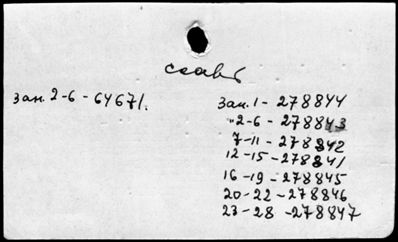 слав
зап. 2-6 - 64671.
Зап. 1 - 278844
" 2-6 - 278843
7-11 - 278842
12-15 - 278841
16-19 - 278845
20-22 - 278846
23-28 - 278847